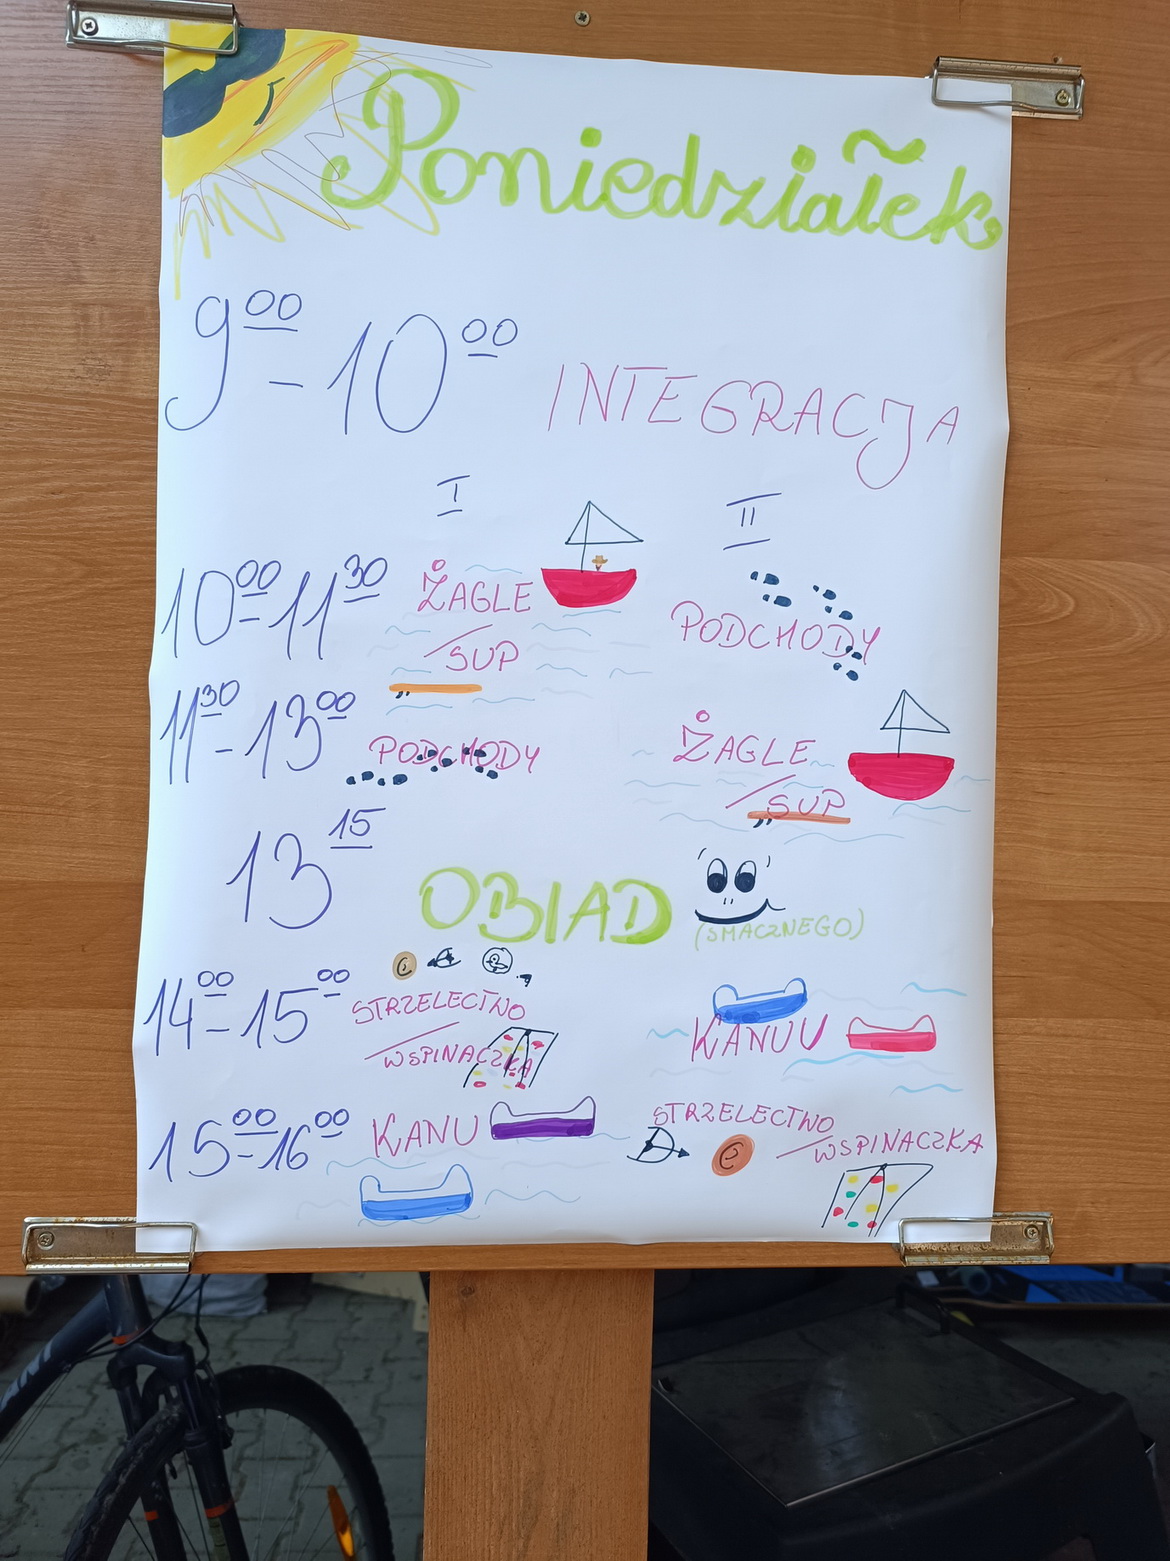 Poniedziałek
9⁰⁰ - 10⁰⁰ INTEGRACJA
I II
10⁰⁰ - 11³⁰ ŻAGLE / SUP PODCHODY
11³⁰ - 13⁰⁰ PODCHODY ŻAGLE / SUP
13¹⁵ OBIAD (SMACZNEGO)
14⁰⁰ - 15⁰⁰ STRZELECTWO / WSPINACZKA KANUU
15⁰⁰ - 16⁰⁰ KANU STRZELECTWO / WSPINACZKA